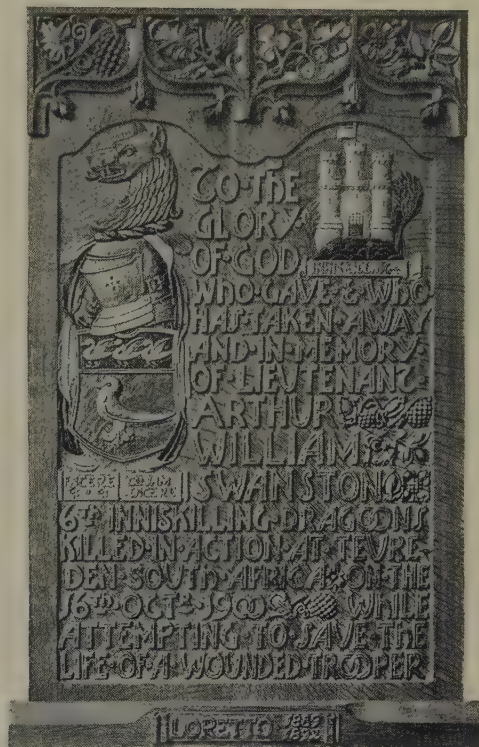 TO·THE
GLORY
OF·GOD
INNISKILLING
WHO·GAVE·&·WHO
HAS·TAKEN·AWAY
AND·IN·MEMORY·
OF·LIEVTENANT·
ARTHUR
WILLIAM
SWANSTON
6TH INNISKILLING·DRAGOONS
KILLED·IN·ACTION·AT·TEVRE-
DEN·SOUTH·AFRICA·ON·THE
16TH·OCTR·1900 WHILE
ATTEMPTING·TO·SAVE·THE
LIFE·OF·A·WOUNDED·TROOPER
LORETTO 1889
189